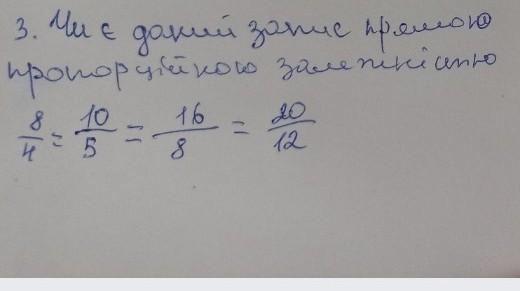 3. Чи є даний запис прямою
пропорційною залежністю
8/4 = 10/5 = 16/8 = 20/12